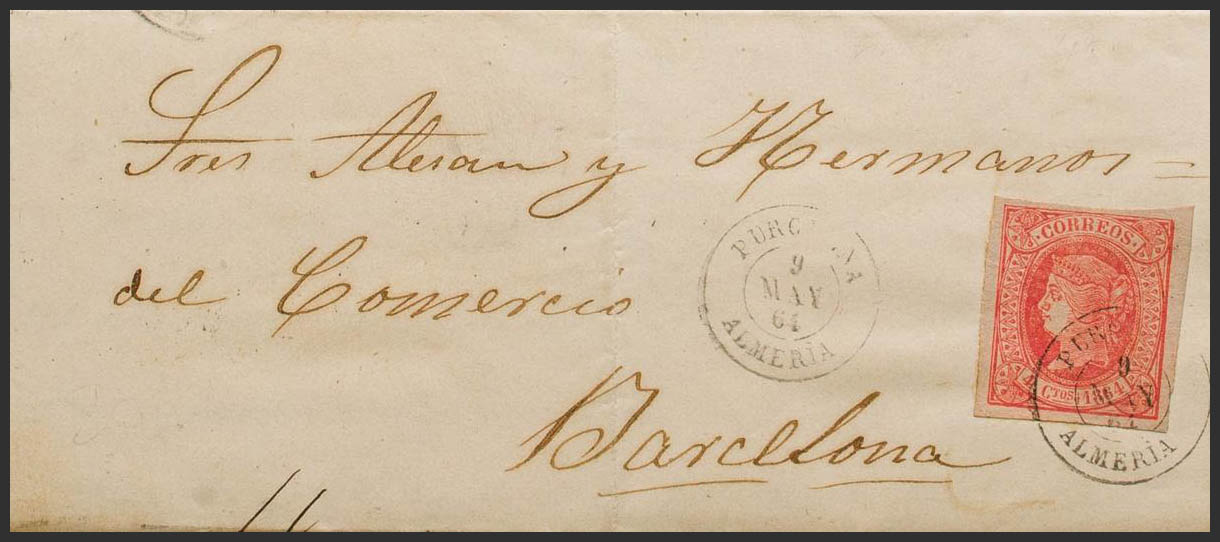 Sres Alesan y Hermanos =
del Comercio
Barcelona
PURCHENA
9
MAY
64
ALMERÍA
CORREOS
4 CTOS 1864
9
MAY
64
ALMERÍA